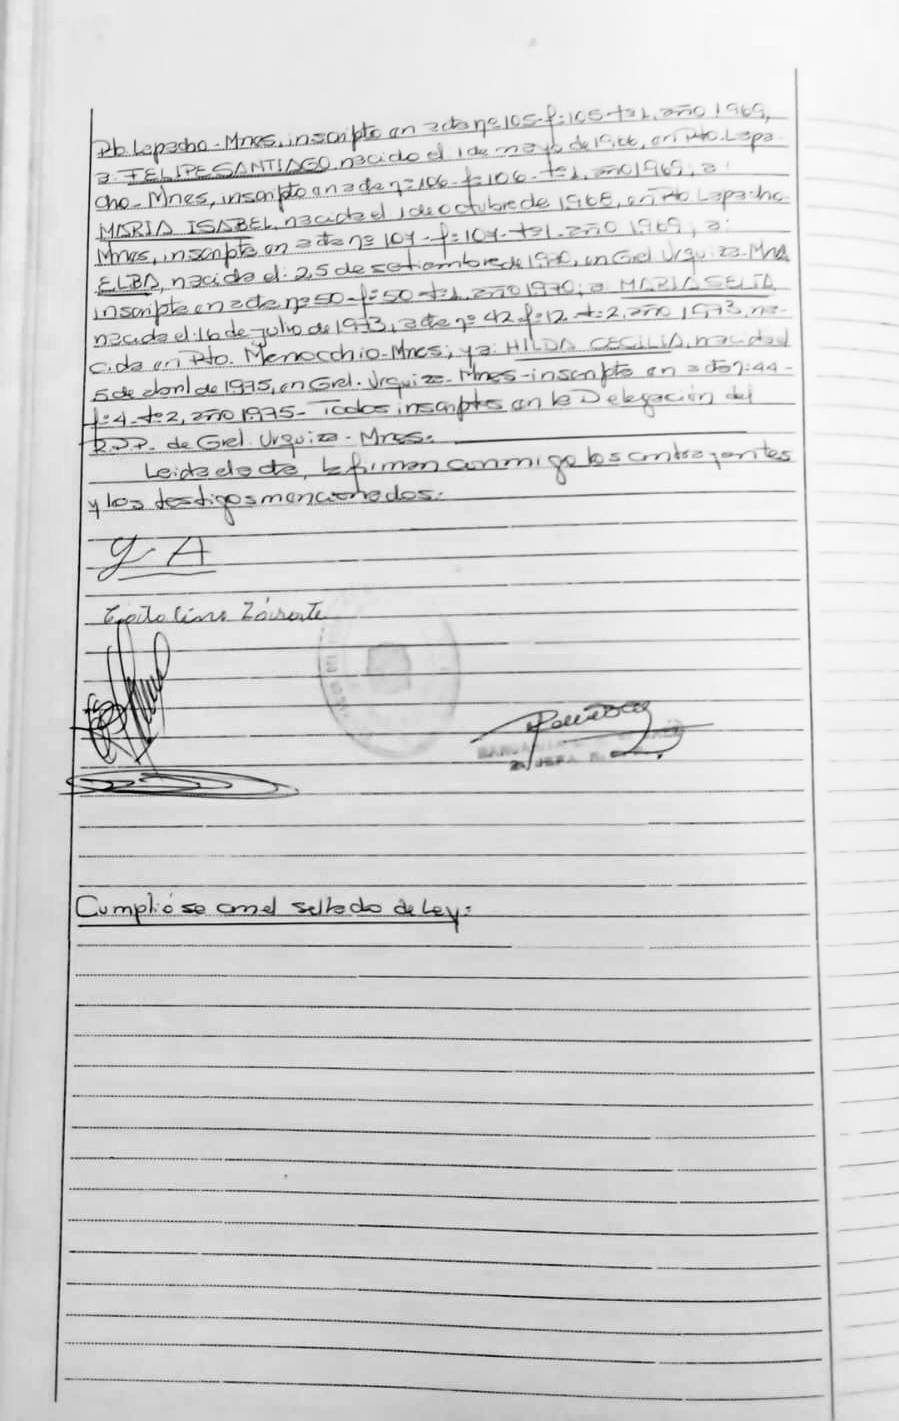 Pto. Lapacho - Mnes, inscripto en acta nº 105 - fº 105 - tº 1, año 1969,
a: FELIPE SANTIAGO, nacido el 1 de mayo de 1966, en Pto. Lapa-
cho - Mnes, inscripto en acta nº 106 - fº 106 - tº 1, año 1969; a:
MARIA ISABEL, nacida el 1 de octubre de 1968, en Pto Lapacho-
Mnes, inscripta en acta nº 107 - fº 107 - tº 1 - año 1969; a:
ELBA, nacida el: 25 de setiembre de 1970, en Gral Urquiza - Mnes
inscripta en acta nº 50 - fº 50 - tº 1, año 1970; a MARIA SELIA,
nacida el: 16 de julio de 1973, acta nº 42 fº 12 - tº 2, año 1973, na-
cida en Pto. Menocchio - Mnes; y a: HILDA CECILIA, nacida el
5 de abril de 1975, en Gral. Urquiza - Mnes - inscripta en acta nº 44 -
fº 4 - tº 2, año 1975 - Todos inscriptos en la Delegación del
R.P.P. de Gral. Urquiza - Mnes.
Leida el acta, la firman conmigo los contrayentes
y los testigos mencionados.
Y. A
Catalina Zárate
JEFA
Cumplióse con el sellado de Ley: